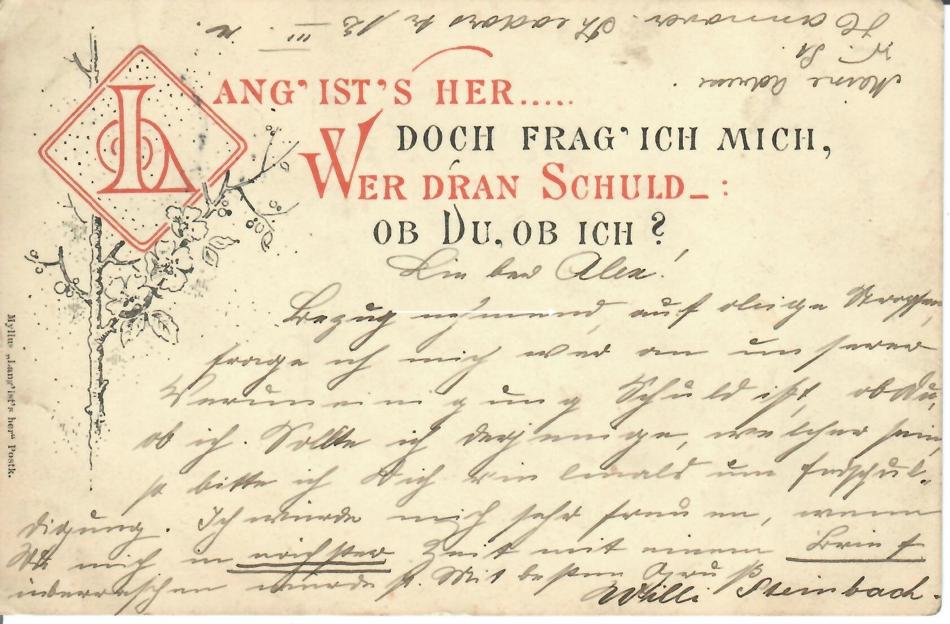 LANG' IST'S HER.....
DOCH FRAG' ICH MICH,
WER DRAN SCHULD_:
OB DU, OB ICH?
Lieber Alex!
Bezug nehmend auf obige Strophe,
frage ich mich wer an unserer
Veruneinigung Schuld ist, ob du,
ob ich. Sollte ich derjenige, welcher sein,
so bitte ich Dich um Entschul-
digung. Ich würde mich sehr freuen, wenn
Du mich in nächster Zeit mit einem Brief
überraschen würdest. Mit besten Gruß
Willi Steinbach.
Meine Adresse
Hannover.
Mylius „Lang' ist's her“ Postk.